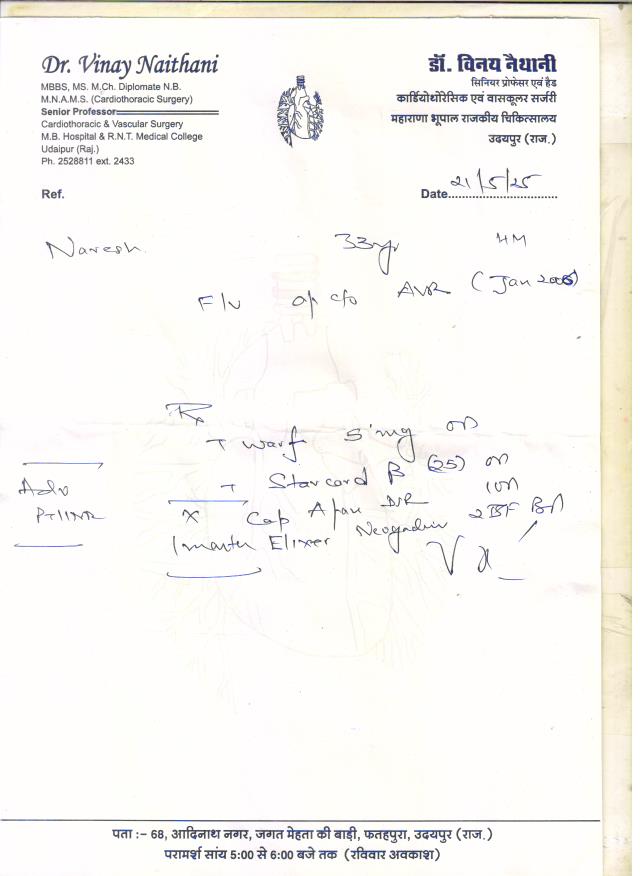 Dr. Vinay Naithani
MBBS, MS. M.Ch. Diplomate N.B.
M.N.A.M.S. (Cardiothoracic Surgery)
Senior Professor
Cardiothoracic & Vascular Surgery
M.B. Hospital & R.N.T. Medical College
Udaipur (Raj.)
Ph. 2528811 ext. 2433
डॉ. विनय नैथानी
सिनियर प्रोफेसर एवं हैड
कार्डियोथोरेसिक एवं वासकूलर सर्जरी
महाराणा भूपाल राजकीय चिकित्सालय
उदयपुर (राज.)
Ref.
Date 21/5/25
Naresh 33yr
F/U op c/o AVR (Jan
Rx
T warf 5mg OD
T Starcard β (25) OD
Adv
PT/INR
Cap DSR 1OD
1 month Elixer Neogadine BD
पता :– 68, आदिनाथ नगर, जगत मेहता की बाड़ी, फतहपुरा, उदयपुर (राज.)
परामर्श सांय 5:00 से 6:00 बजे तक (रविवार अवकाश)